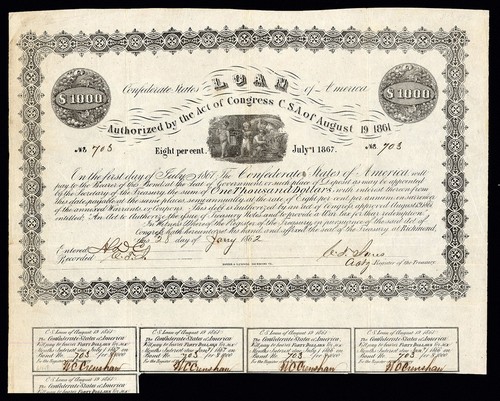 LOAN
Confederate States of America
$1000 $1000
Authorized by the Act of Congress C.S.A. of August 19 1861
No. 703 No. 703
Eight per cent. July 1 1867.
On the first day of July 1867. The Confederate States of America will
pay to the Bearer of this Bond, at the Seat of Government, or such place of Deposit as may be appointed
by the Secretary of the Treasury, the sum of One Thousand Dollars, with interest thereon from
this date, payable at the same place, semi annually, at the rate of Eight per cent per annum on surrender
of the annexed Warrants, or Coupons. This debt is authorized by an act of Congress, approved August 19 1861
entitled: An Act to Authorize the Issue of Treasury Notes and to provide a War tax for their redemption.
In Witness Whereof the Register of the Treasury in pursuance of the said Act of
Congress, hath hereunto set his hand and affixed the seal of the Treasury at Richmond,
this 23 day of Jany 1862
Entered
Recorded
Register of the Treasury
C.S. Loan of August 19 1861 C.S. Loan of August 19 1861 C.S. Loan of August 19 1861 C.S. Loan of August 19 1861
The Confederate States of America The Confederate States of America The Confederate States of America The Confederate States of America
Will pay to bearer FORTY DOLLARS for six Will pay to bearer FORTY DOLLARS for six Will pay to bearer FORTY DOLLARS for six Will pay to bearer FORTY DOLLARS for six
Months Interest due July 1 1867 on Months Interest due Jany 1 1867 on Months Interest due July 1 1866 on Months Interest due Jany 1 1866 on
Bond No. 703 for $1000 Bond No. 703 for $1000 Bond No. 703 for $1000 Bond No. 703 for $1000
For the Register For the Register For the Register For the Register
W C Crenshaw W C Crenshaw W C Crenshaw W C Crenshaw
C.S. Loan of August 19 1861
The Confederate States of America
Will pay to bearer FORTY DOLLARS for six